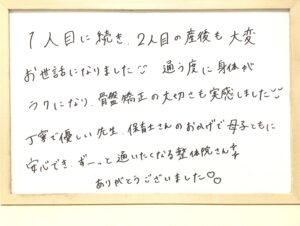 1人目に続き、2人目の産後も大変
お世話になりました 通う度に身体が
ラクになり、骨盤矯正の大切さも実感しました
丁寧で優しい先生、保育士さんのおかげで母子ともに
安心でき、ずーっと通いたくなる整体院さん
ありがとうございました